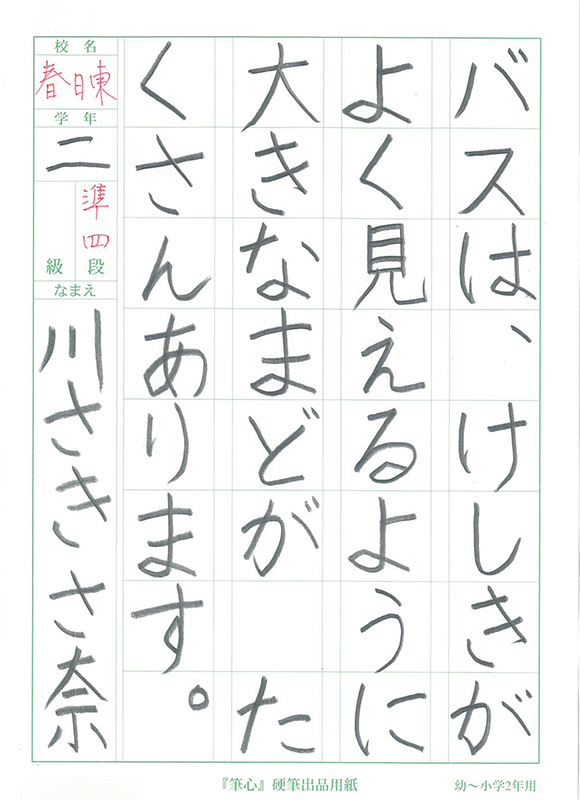 バスは、けしきが
よく見えるように
大きなまどが　た
くさんあります。
校名
春日東
学年
二
準四
級段
なまえ
川さきさ奈
『筆心』硬筆出品用紙
幼～小学2年用